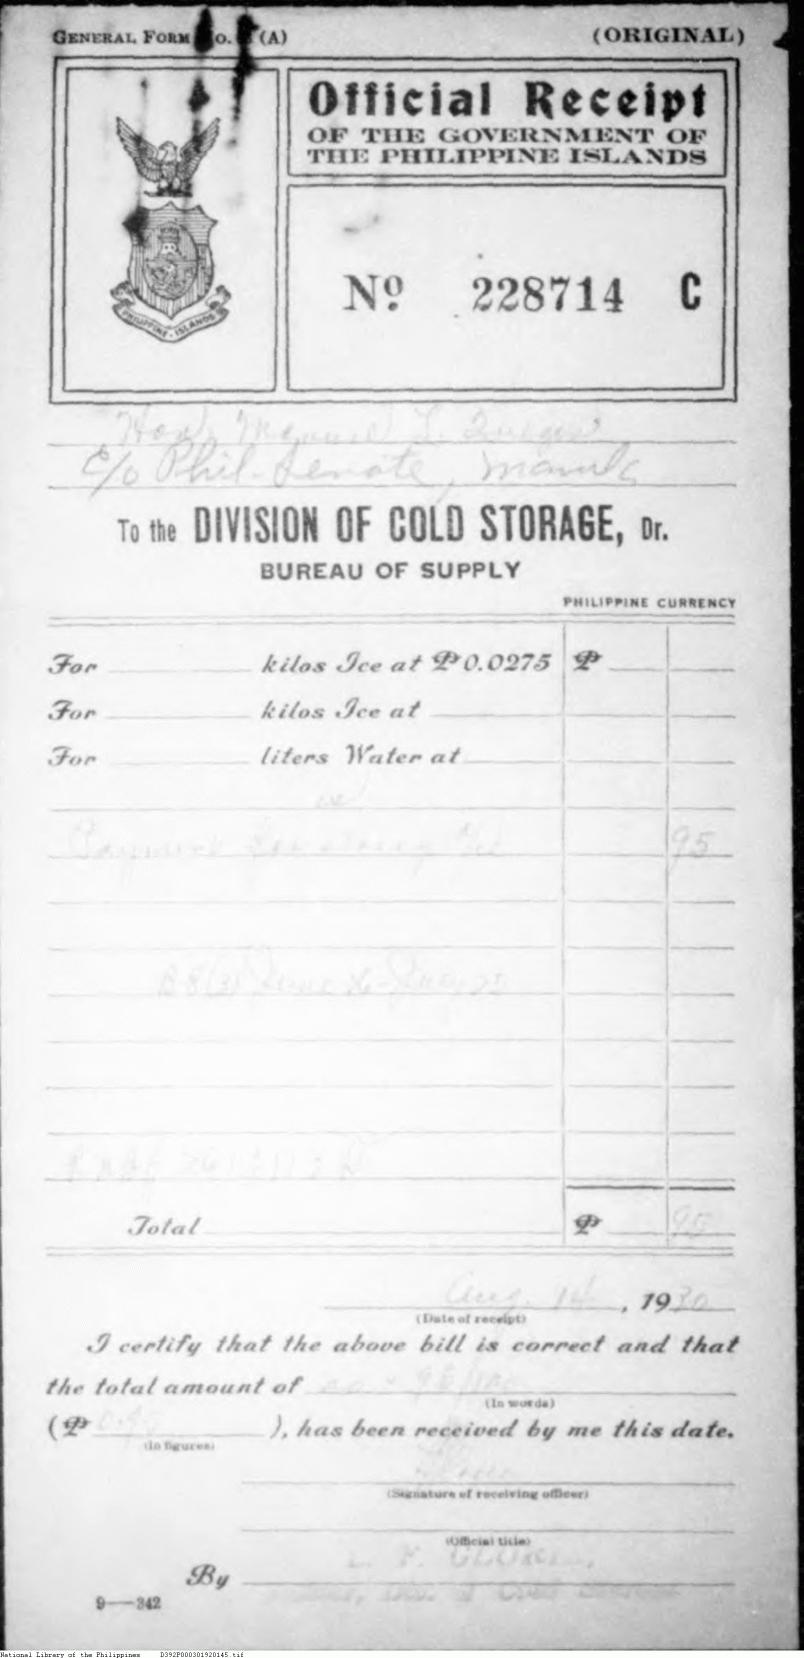 GENERAL FORM No. (A)
(ORIGINAL)
Official Receipt
OF THE GOVERNMENT OF
THE PHILIPPINE ISLANDS
PHILIPPINE ISLANDS
Nº 228714 C
Hon. Manuel L. Quezon
C/o Phil. Senate, Manila
To the DIVISION OF COLD STORAGE, Dr.
BUREAU OF SUPPLY
PHILIPPINE CURRENCY
For kilos Ice at ₱0.0275 ₱
For kilos Ice at
For liters Water at
Payment for 95
Total ₱ 95
Aug. 14, 1930
(Date of receipt)
I certify that the above bill is correct and that
the total amount of no - 95/100
(In words)
(₱ 0.95 ), has been received by me this date.
(In figures)
(Signature of receiving officer)
(Official title)
By
9—342
National Library of the Philippines D392P000301920145.tif